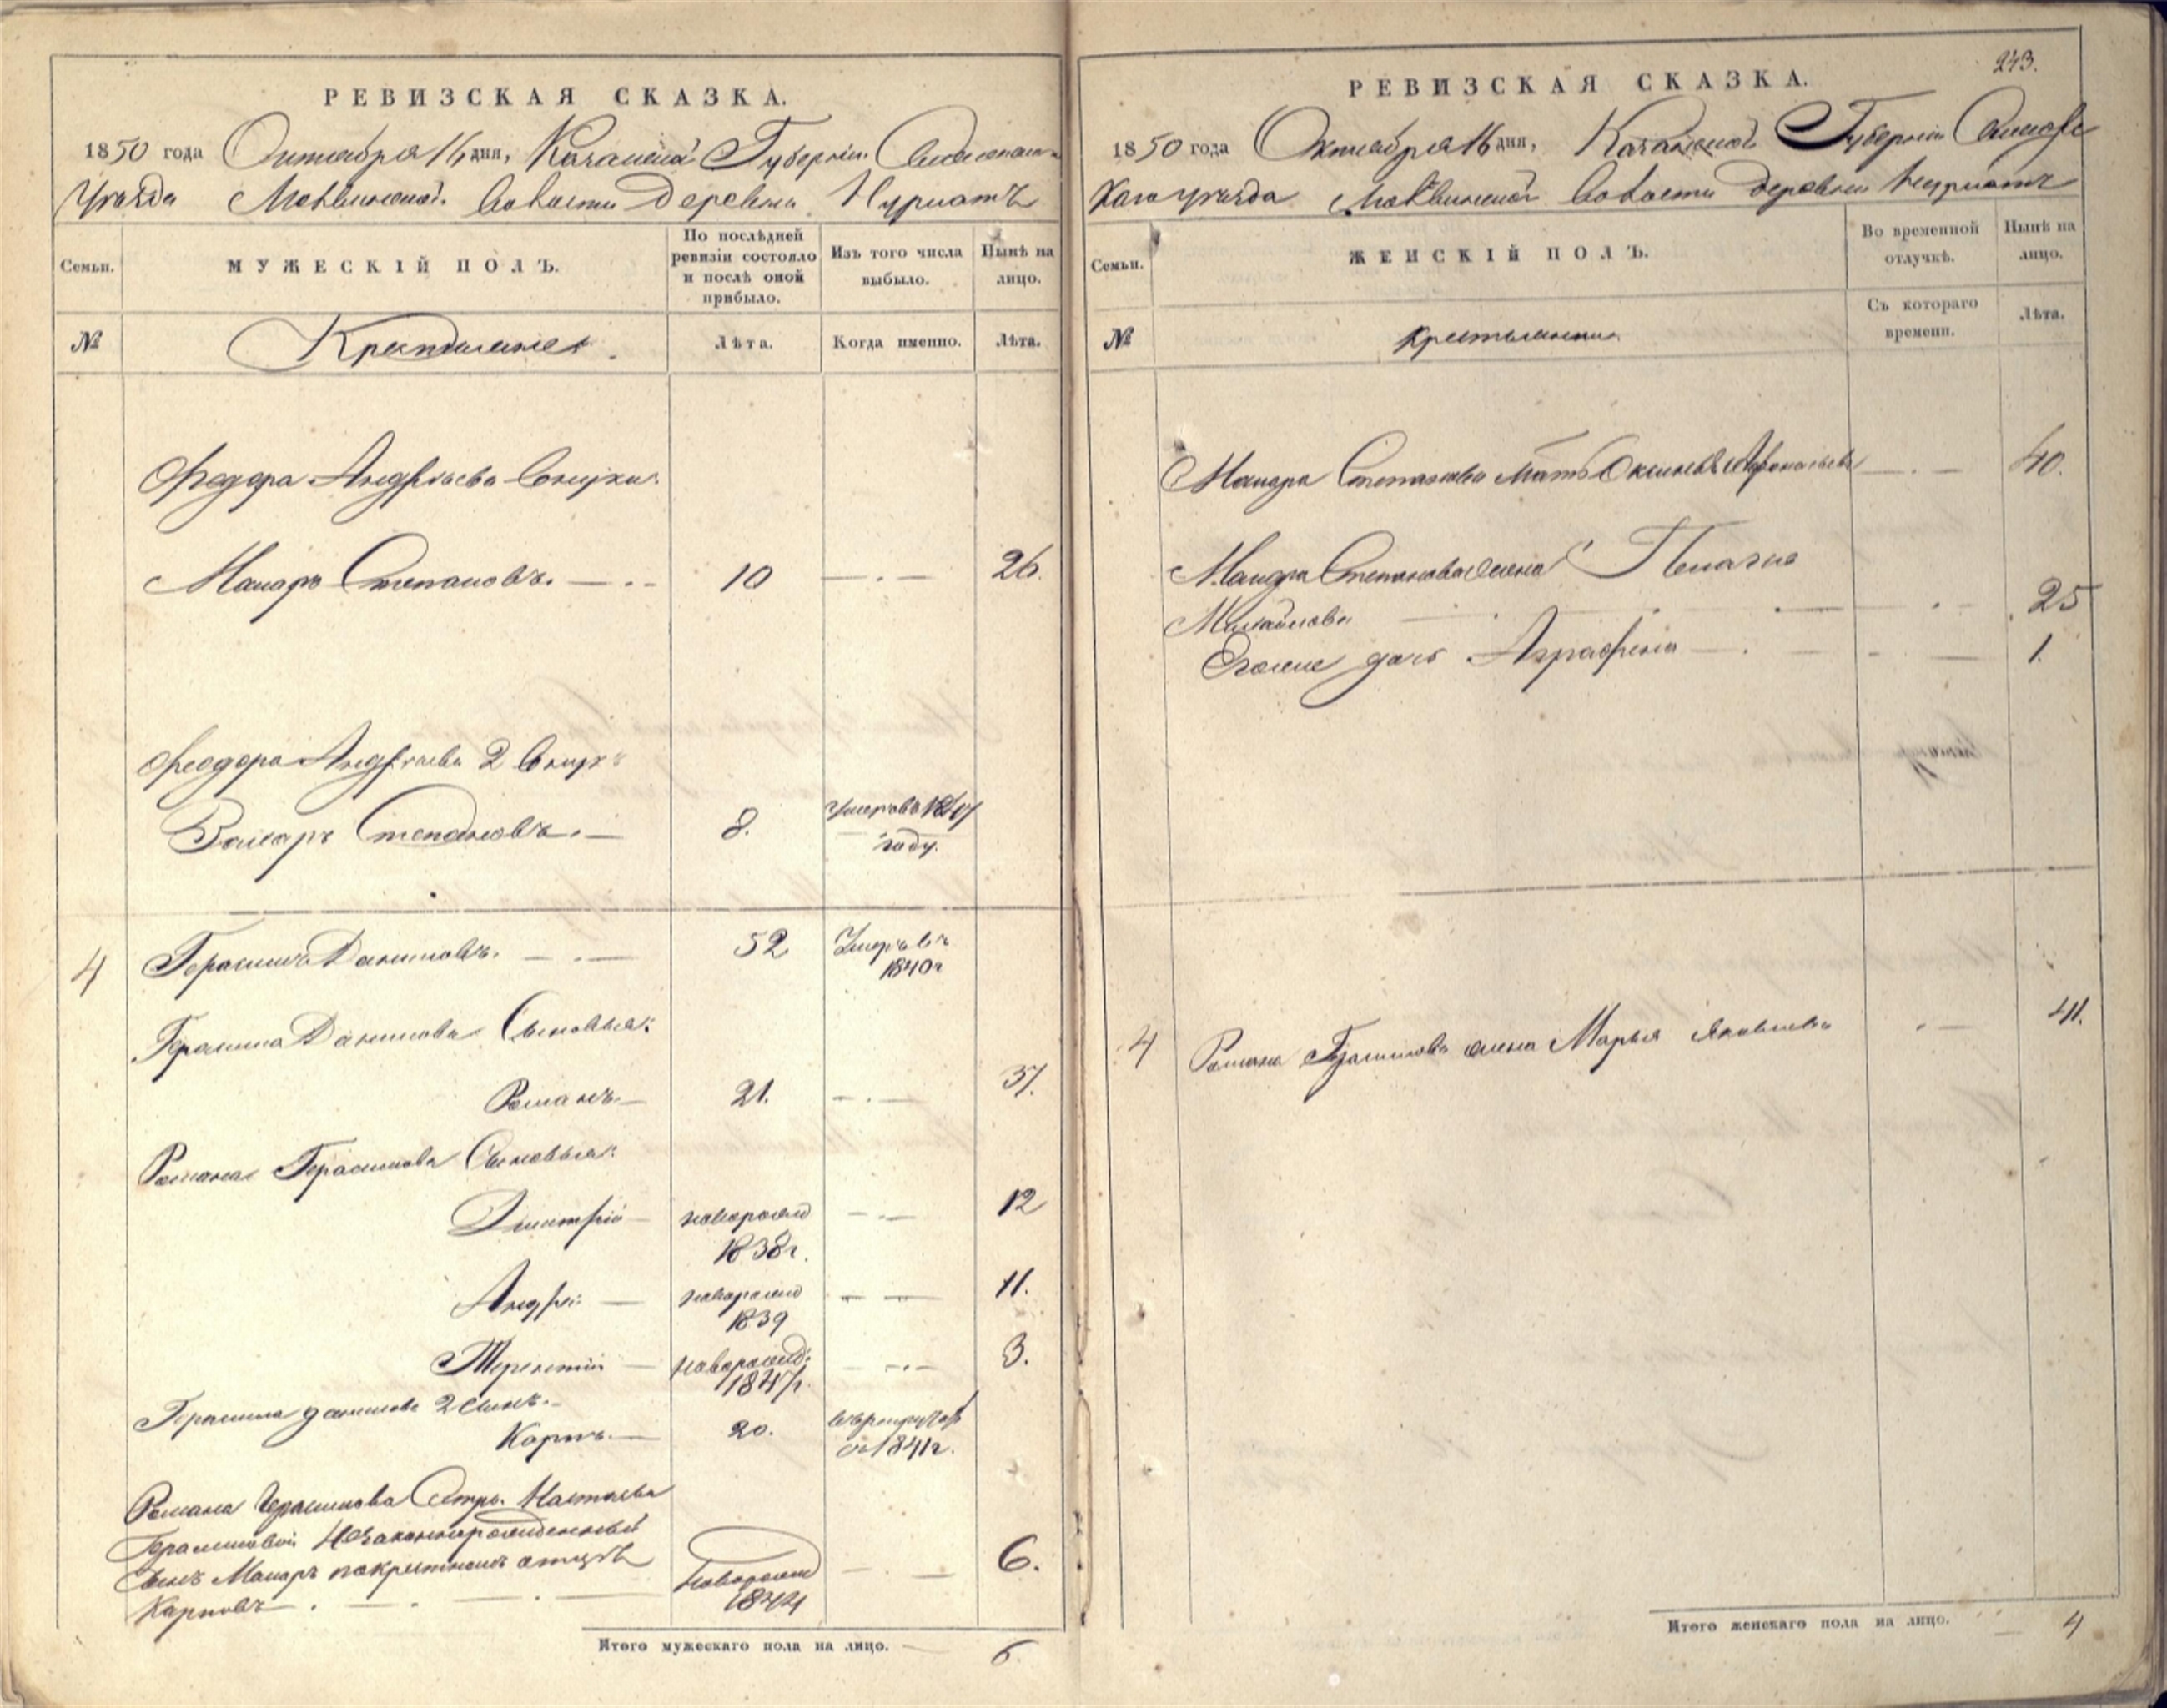 РЕВИЗСКАЯ СКАЗКА.
1850 года Октября 16 дня, Казанской Губернии
Уѣзда Волости Деревни Нурматъ
Семьи.
МУЖЕСКІЙ ПОЛЪ.
По послѣдней ревизіи состояло и послѣ оной прибыло.
Изъ того числа выбыло.
Нынѣ на лицо.
№
Крестьяне
Лѣта.
Когда именно.
Лѣта.
Феодора Андреева внуки
Макаръ Степановъ. 10 26.
Феодора Андреева 2 внукъ
Захаръ Степановъ. 8. Умеръ въ 1847 году.
4 Герасимъ Даниловъ. 52 Умеръ въ 1840г
Герасима Данилова Сыновья:
Романъ 21. 37.
Романа Герасимова Сыновья:
Дмитрій новорожд 1838г. 12
Андрей новорожд 1839 11.
Терентій новорожд: 1847г. 3.
Герасима данилова 2 сынъ.
Карпъ. 20. въ рекрут въ 1841г.
Романа Герасимова Сестры Настасьи
Герасимовой Незаконнорожденный
Сынъ Макаръ по крестномъ отцѣ
Карповъ новорожд 1844 6.
Итого мужескаго пола на лицо. 6
243.
РЕВИЗСКАЯ СКАЗКА.
1850 года Октября 16 дня, Казанской Губерніи
Уѣзда Волости Деревни Нурматъ
Семьи.
ЖЕНСКІЙ ПОЛЪ.
Во временной отлучкѣ.
Нынѣ на лицо.
№
Крестьянки
Съ котораго времени.
Лѣта.
Макара Степанова мать 40.
Макара Степанова жена Пелагея
Михайлова 25
Его же дочь Аграфена 1.
4 Романа Герасимова жена Марья Яковлева 41.
Итого женскаго пола на лицо. 4